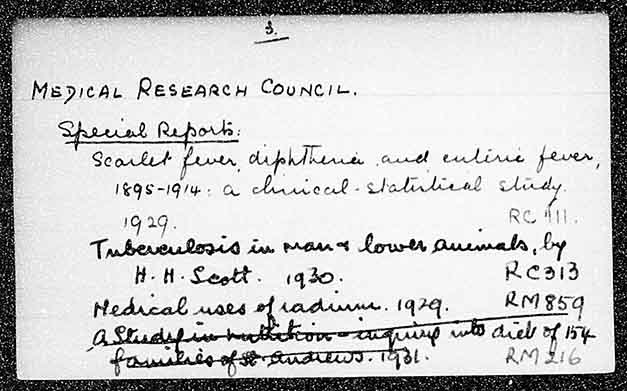 3.
MEDICAL RESEARCH COUNCIL.
Special Reports:
Scarlet fever, diphtheria and enteric fever,
1895-1914: a clinical-statistical study.
1929. RC 111.
Tuberculosis in man & lower animals, by
H. H. Scott. 1930. RC313
Medical uses of radium. 1929. RM859
A Study in nutrition - inquiry into diet of 154
families of St Andrews. 1931. RM216